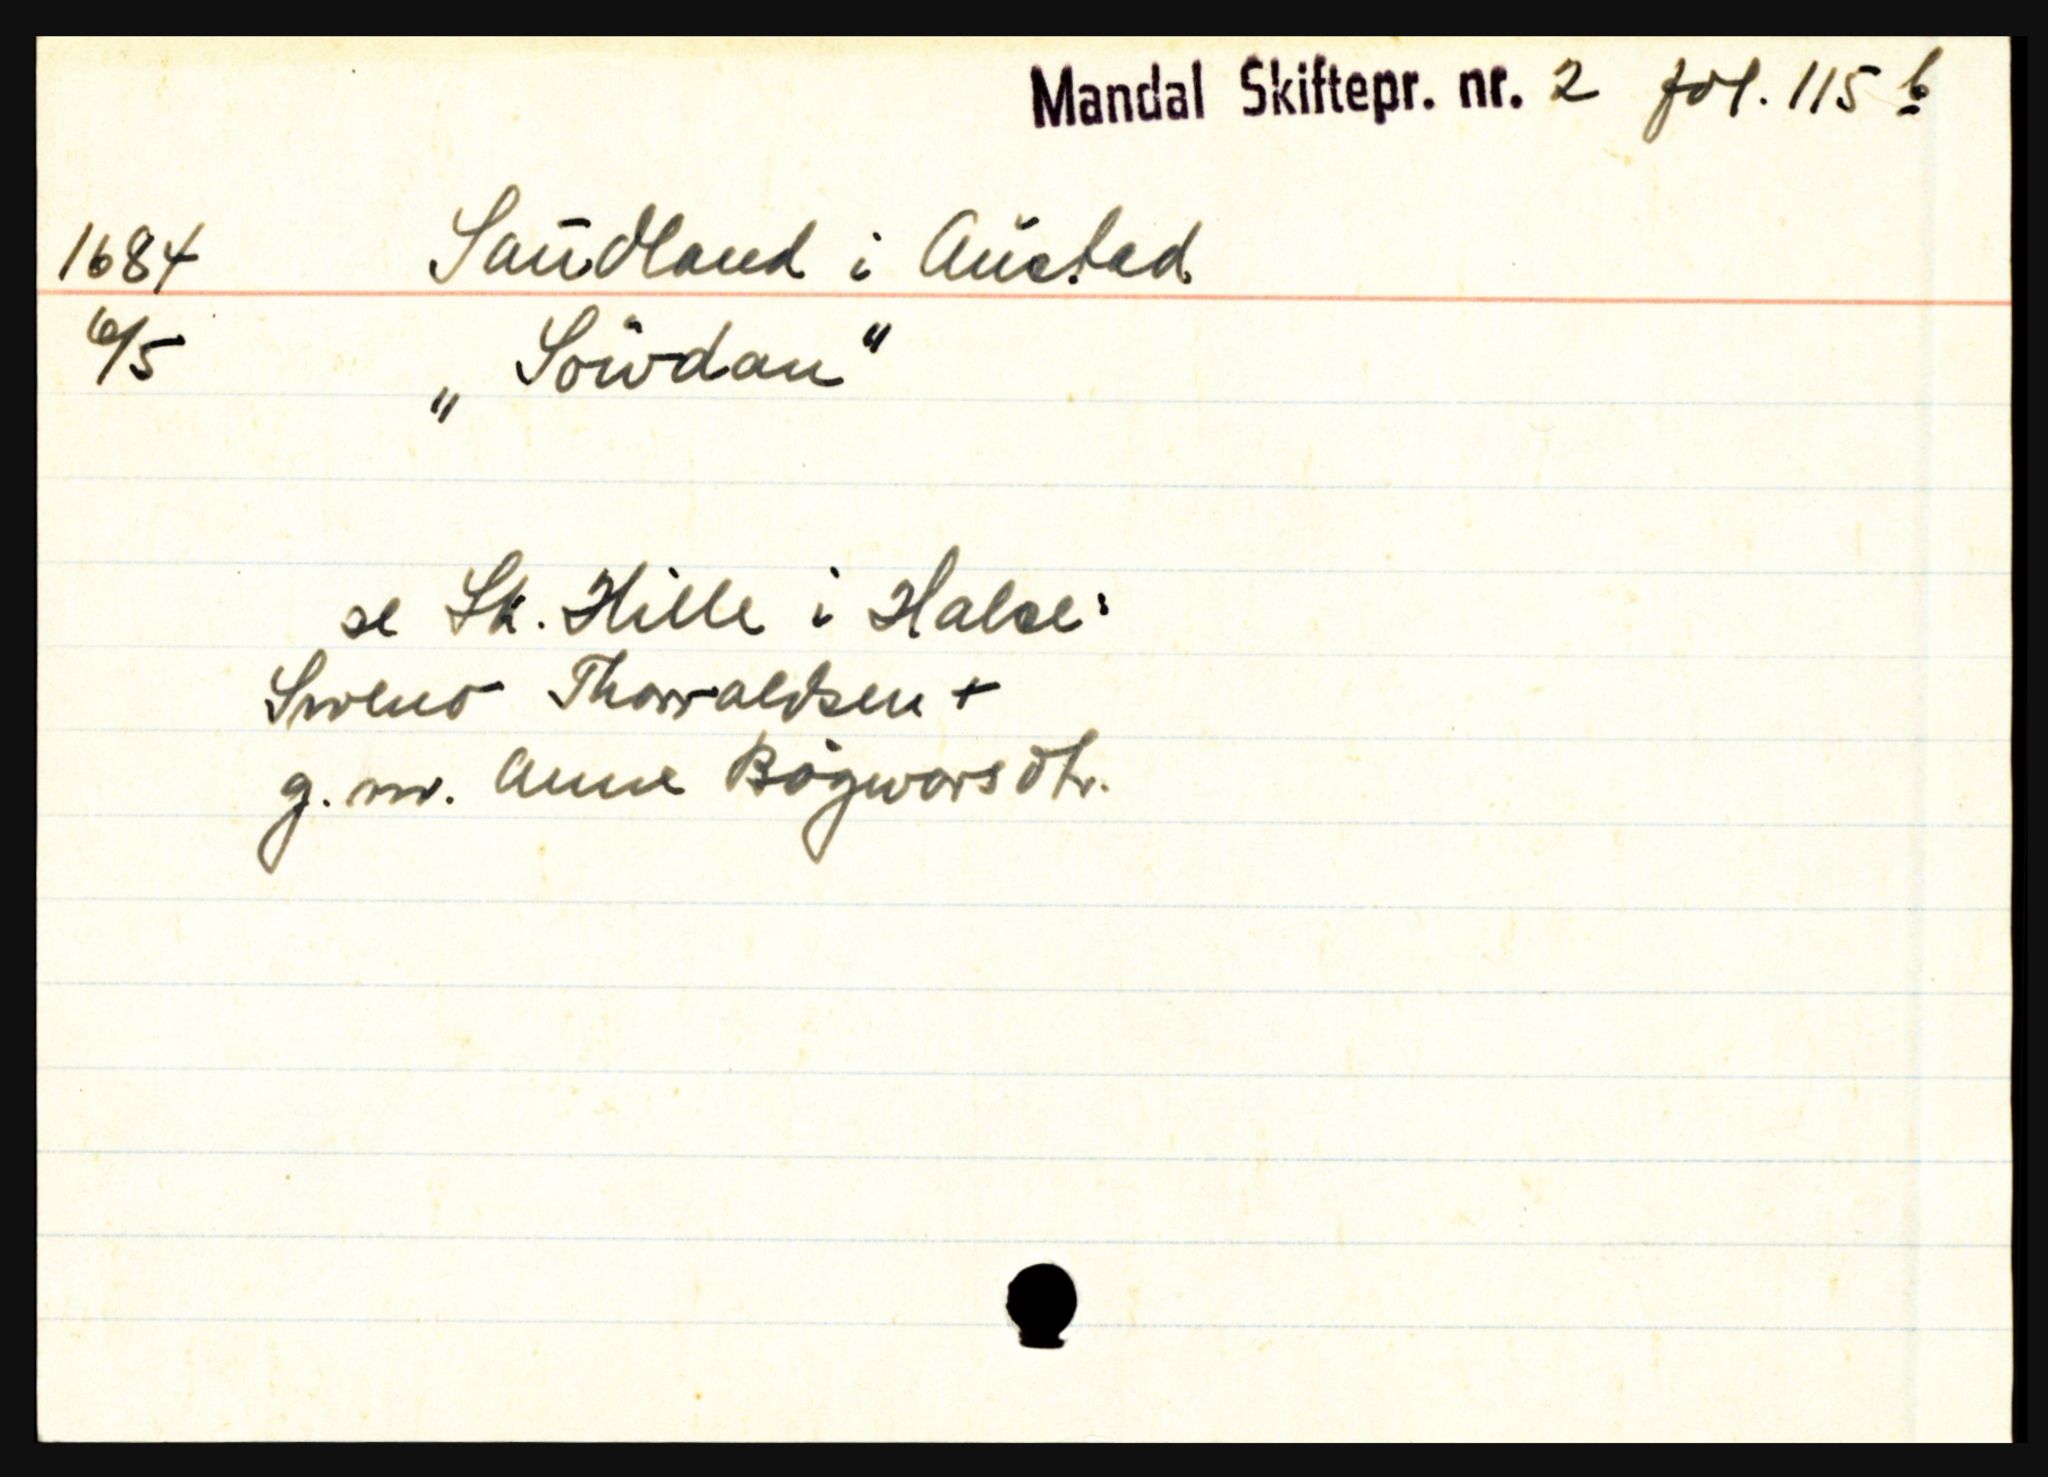 Mandal Skiftepr. nr. 2 fol. 115 b
1684 Saudland i Austad
6/5 „Sowdan"
se Sk. Hille i Halse:
Swend Thorvaldsen +
g. m. Anne Bøgwarsdtr.